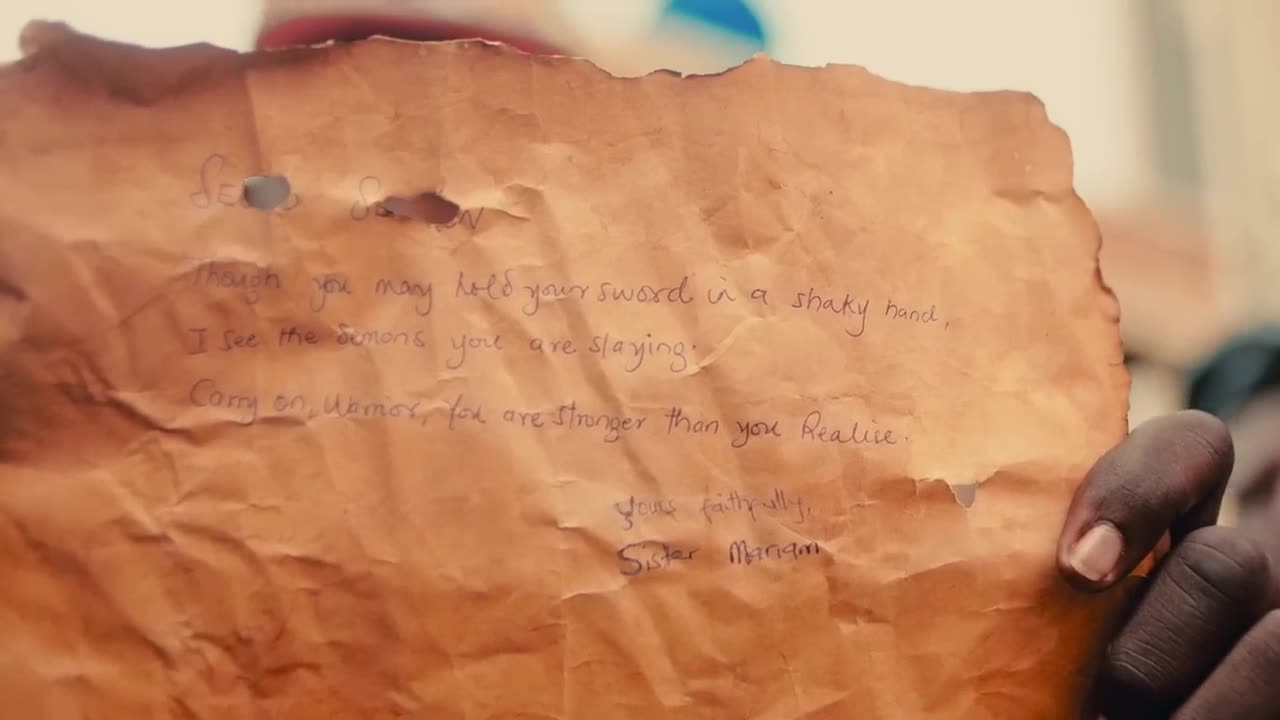 Though you may hold your sword in a shaky hand,
I see the demons you are slaying.
Carry on, Warrior, You are stronger than you Realise.
Yours faithfully,
Sister Mariam